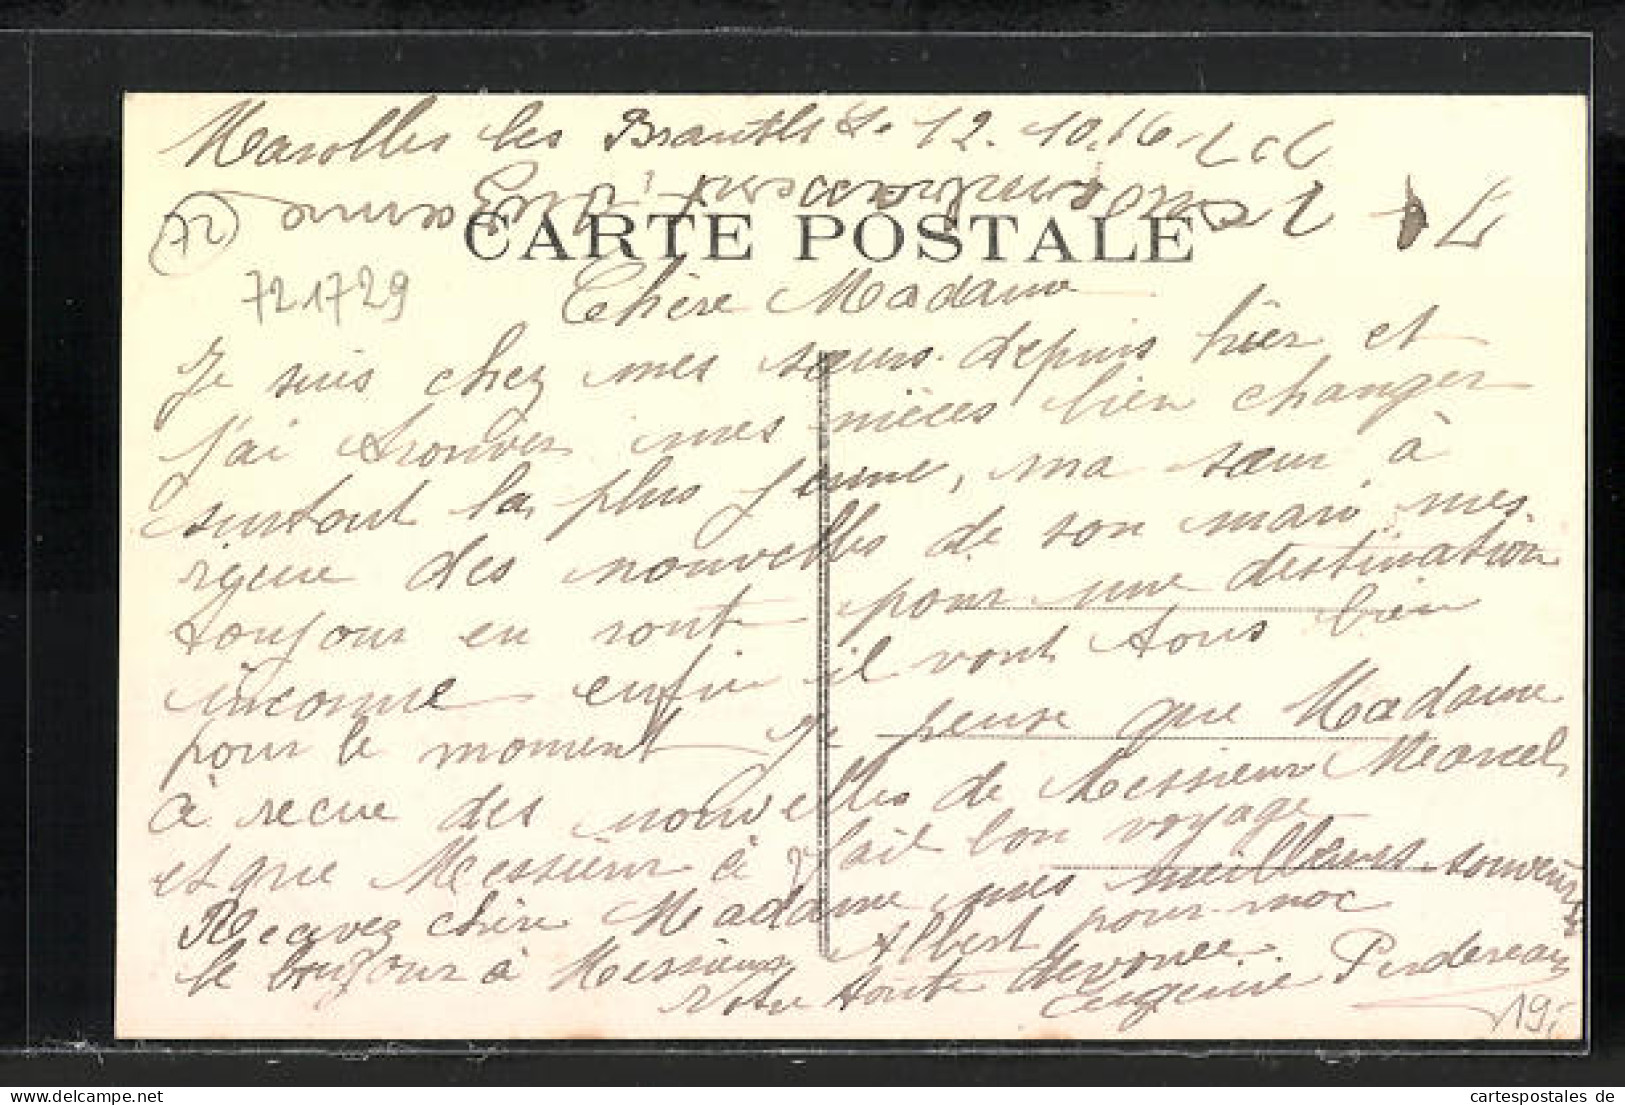 Marolles les Braults le 12.10.16
CARTE POSTALE
72
721729
Chère Madame
Je suis chez mes sœurs depuis hier et
j'ai trouver mes nièces bien changer
surtout la plus jeune, ma sœur à
rçeue des nouvelles de son mari mes
toujour en rout pour une destination
inconnue enfin il vont tous bien
pour le moment Je pense que Madame
à recue des nouvelles de Messieur Marcel
et que Messieur à fait bon voyage
Recevez chère Madame mes meilleurs souvenirs
le boujour à Messieur Albert pour moi
votre toute devouee
Eugenie Perdereau
19
cartespostales de